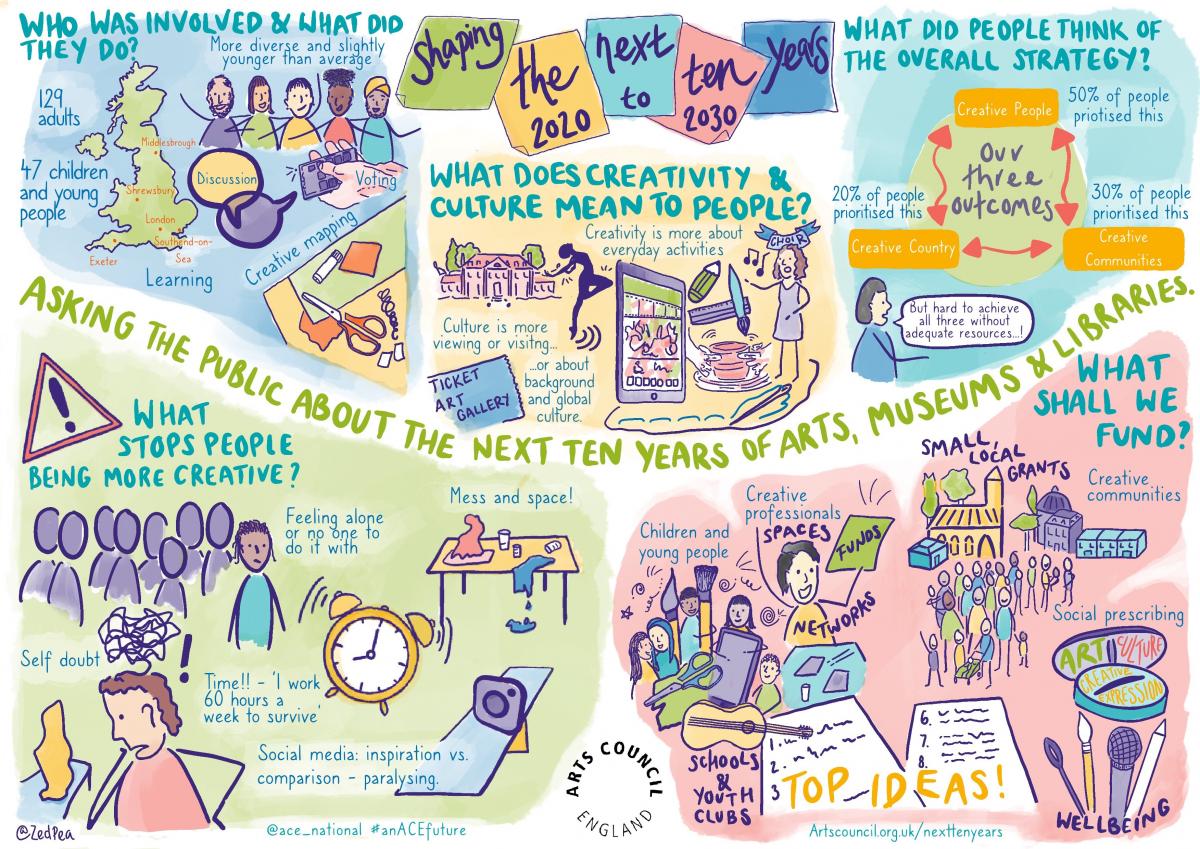 WHO WAS INVOLVED & WHAT DID
THEY DO?
More diverse and slightly
younger than average
129
adults
47 children
and young
people
Middlesbrough
Shrewsbury
London
Southend-on-
Sea
Exeter
Discussion
Voting
Creative mapping
Learning
shaping
the
next
ten
years
2020
to
2030
WHAT DOES CREATIVITY &
CULTURE MEAN TO PEOPLE?
Creativity is more about
everyday activities
CHOIR
Culture is more
viewing or visitng...
...or about
background
and global
culture.
TICKET
ART
GALLERY
WHAT DID PEOPLE THINK OF
THE OVERALL STRATEGY?
Creative People
50% of people
priotised this
Our
three
outcomes
20% of people
prioritised this
30% of people
prioritised this
Creative Country
Creative
Communities
But hard to achieve
all three without
adequate resources...!
ASKING THE PUBLIC ABOUT THE NEXT TEN YEARS OF ARTS, MUSEUMS & LIBRARIES.
WHAT
STOPS PEOPLE
BEING MORE CREATIVE?
Feeling alone
or no one to
do it with
Mess and space!
Self doubt
Time!! - 'I work
60 hours a
week to survive'
Social media: inspiration vs.
comparison - paralysing.
@ZedPea
@ace_national #anACEfuture
ARTS COUNCIL
ENGLAND
WHAT
SHALL WE
FUND?
SMALL,
LOCAL
GRANTS
Creative
communities
Creative
professionals
SPACES
FUNDS
NETWORKS
Children and
young people
Social prescribing
ART
CULTURE
CREATIVE
EXPRESSION
WELLBEING
SCHOOLS
&
YOUTH
CLUBS
1.
2.
3
6.
7.
8.
TOP IDEAS!
Artscouncil.org.uk/nexttenyears